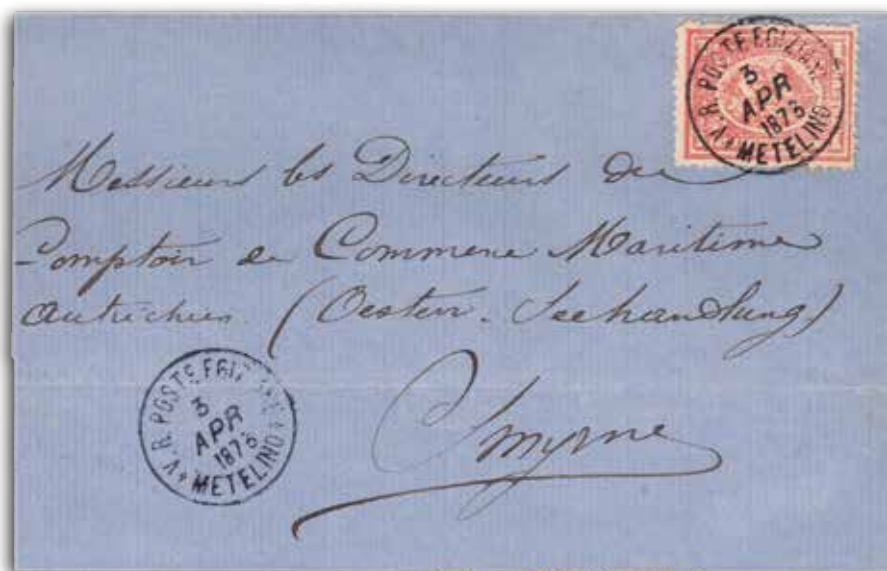 V. R. POSTE EGIZIANE
3
APR
1876
METELINO
Messieurs les Directeurs du
Comptoir de Commerce Maritime
Autrichien (Oesterr. Seehandlung)
Smyrne
V. R. POSTE EGIZIANE
3
APR
1876
METELINO